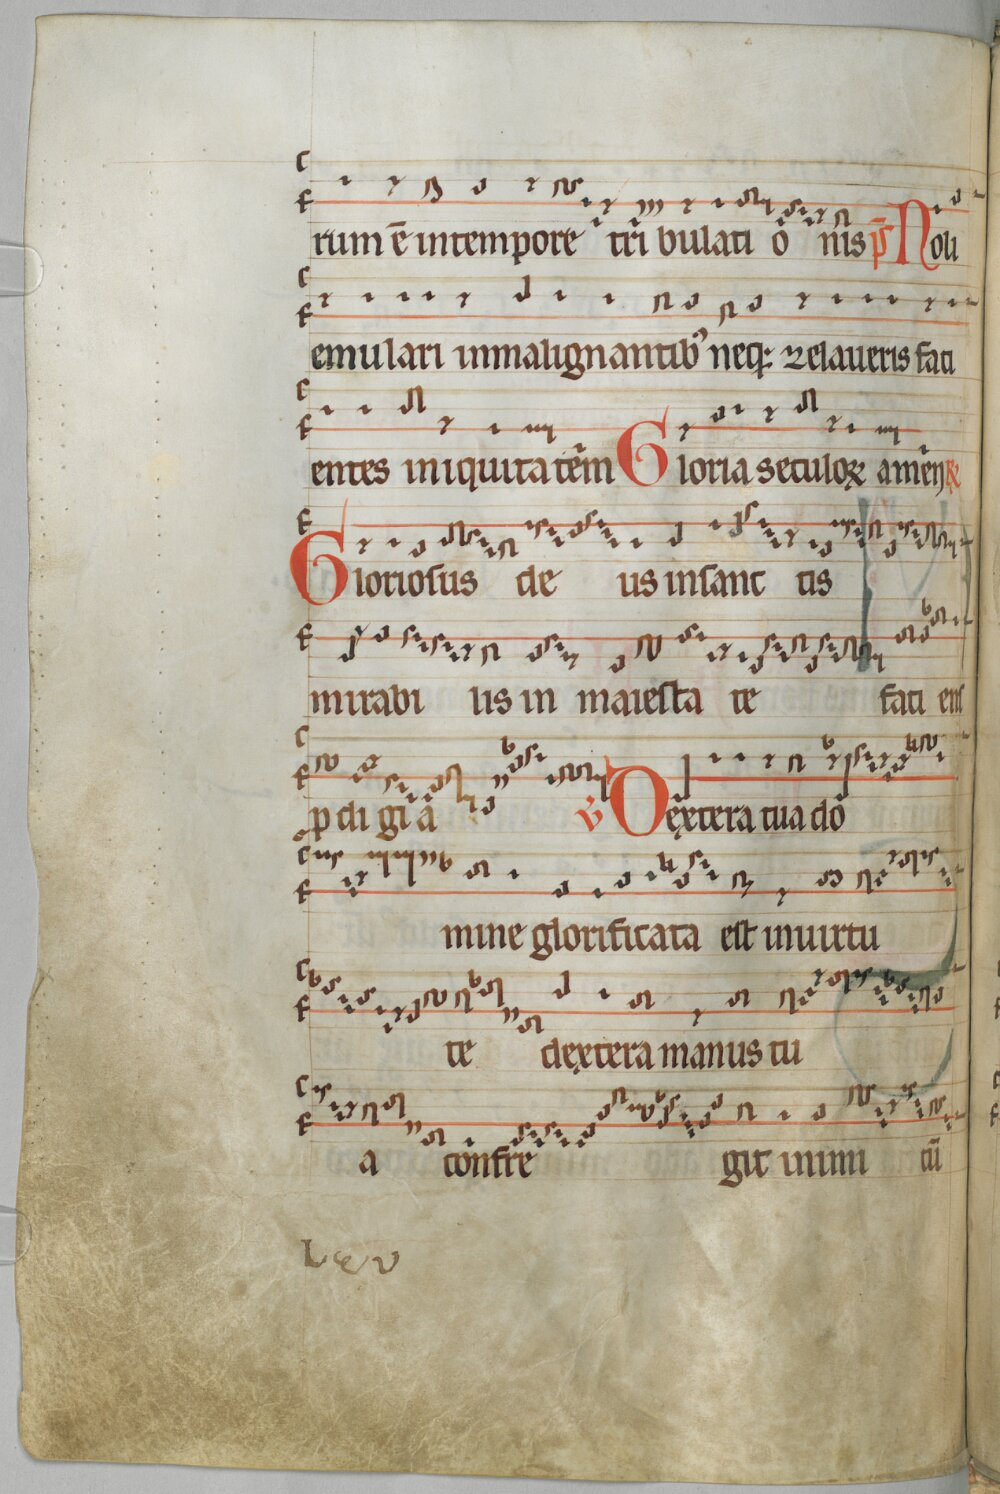 rum ē intempore tri bulati o nis ps Noli
emulari inmalignantib⁹ neq; zelaueris faci
entes iniquitatem Gloria seculoꝝ amen R
Gloriosus de us insanc tis
mirabi lis in maiesta te faci ens
pdi gi a V Dextera tua do
mine glorificata est inuirtu
te dextera manus tu
a confre git inimi cū